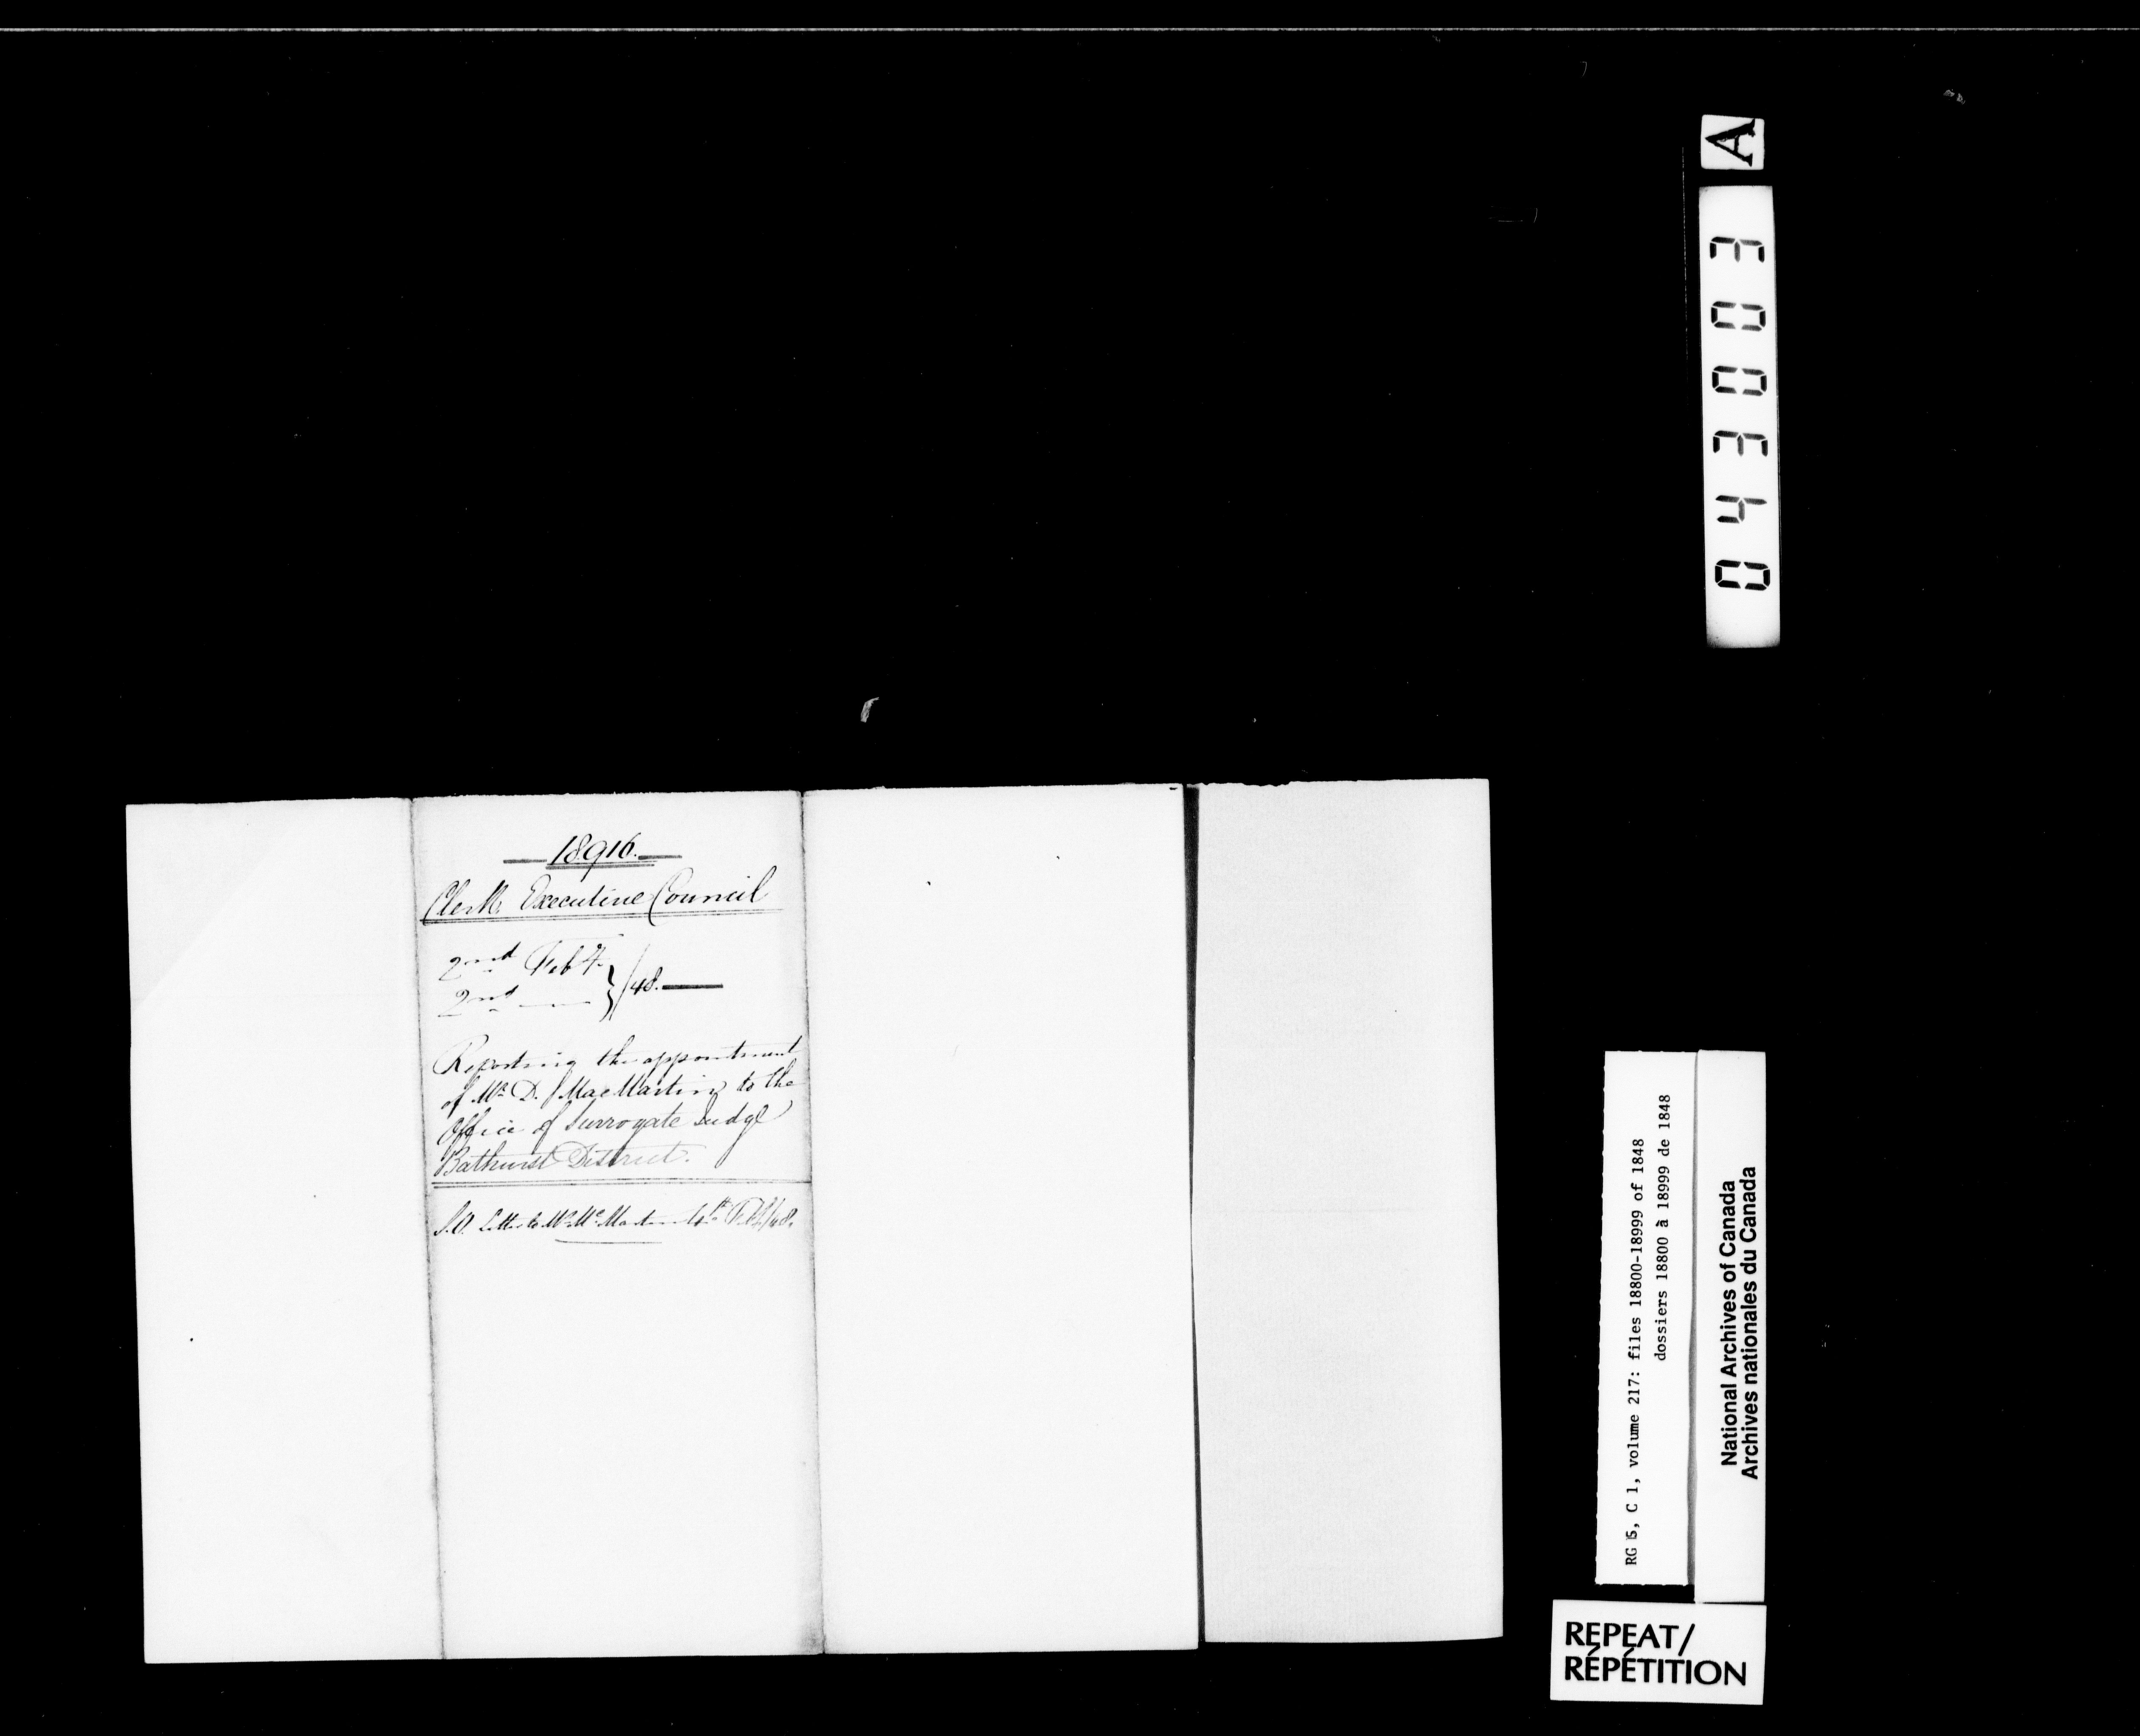 18916.
Clerk Executive Council
2nd Feby
2nd — } /48.
Reporting the appointment
of Mr D. MacMartin to the
Office of Surrogate Judge
Bathurst District.
S.O. Letter to Mr McMartin 4th Feb/48.
A
043003
RG 5, C 1, volume 217: files 18800-18999 of 1848
dossiers 18800 à 18999 de 1848
National Archives of Canada
Archives nationales du Canada
REPEAT/
RÉPÉTITION